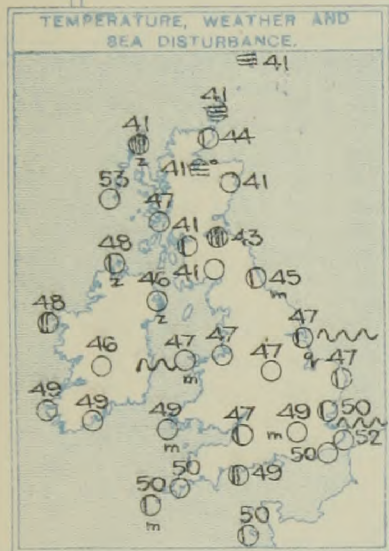 TEMPERATURE, WEATHER AND
SEA DISTURBANCE.
41
41
41
44
41
41
53
47
41
43
48
41
z
z
46
45
m
48
z
47
q
46
47
m
47
47
47
49
49
49
m
47
49
m
50
52
50
50
49
50
m
50